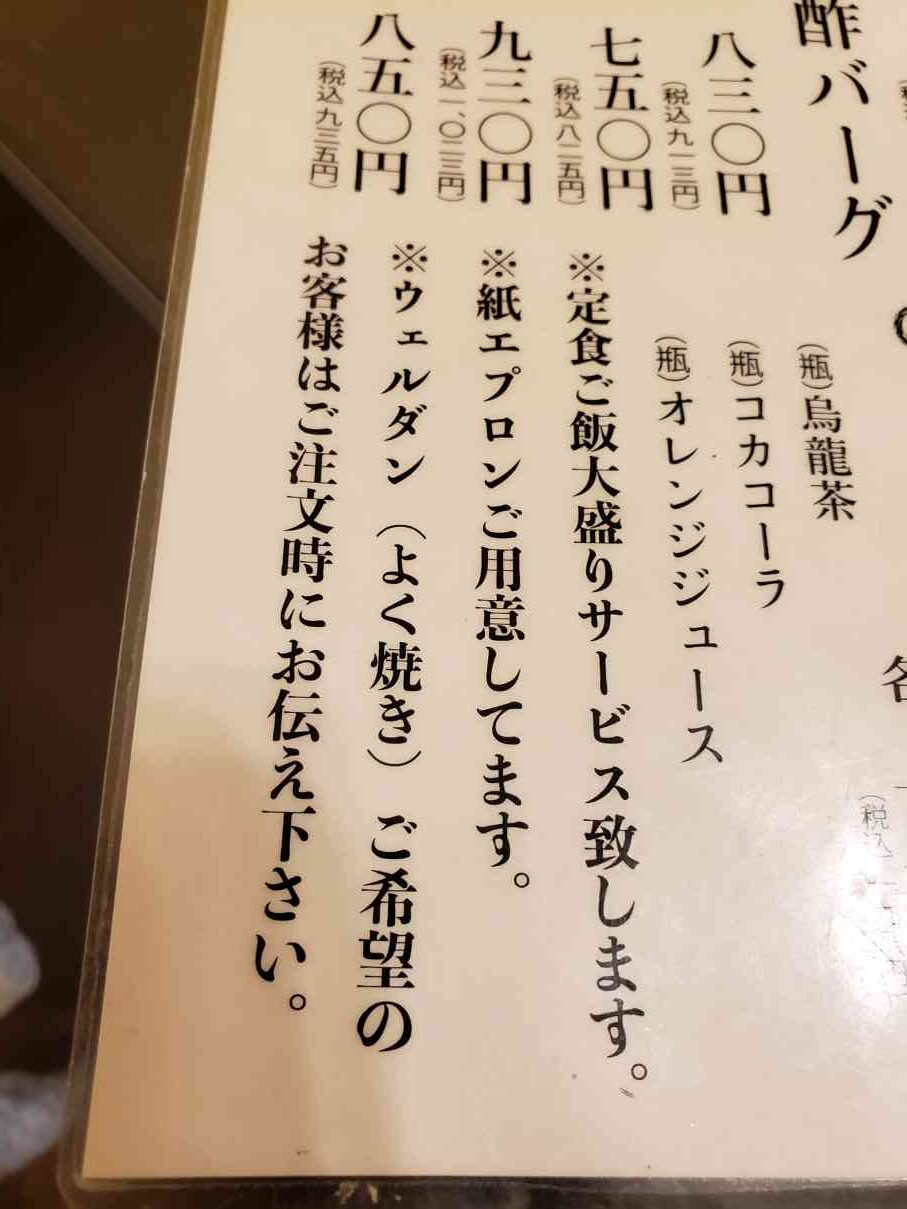 酢バーグ
八三〇円
(税込九一三円)
七五〇円
(税込八二五円)
九三〇円
(税込一、〇二三円)
八五〇円
(税込九三五円)
(瓶)烏龍茶
(瓶)コカコーラ
(瓶)オレンジジュース
※定食ご飯大盛りサービス致します。
※紙エプロンご用意してます。
※ウェルダン（よく焼き）ご希望の
お客様はご注文時にお伝え下さい。